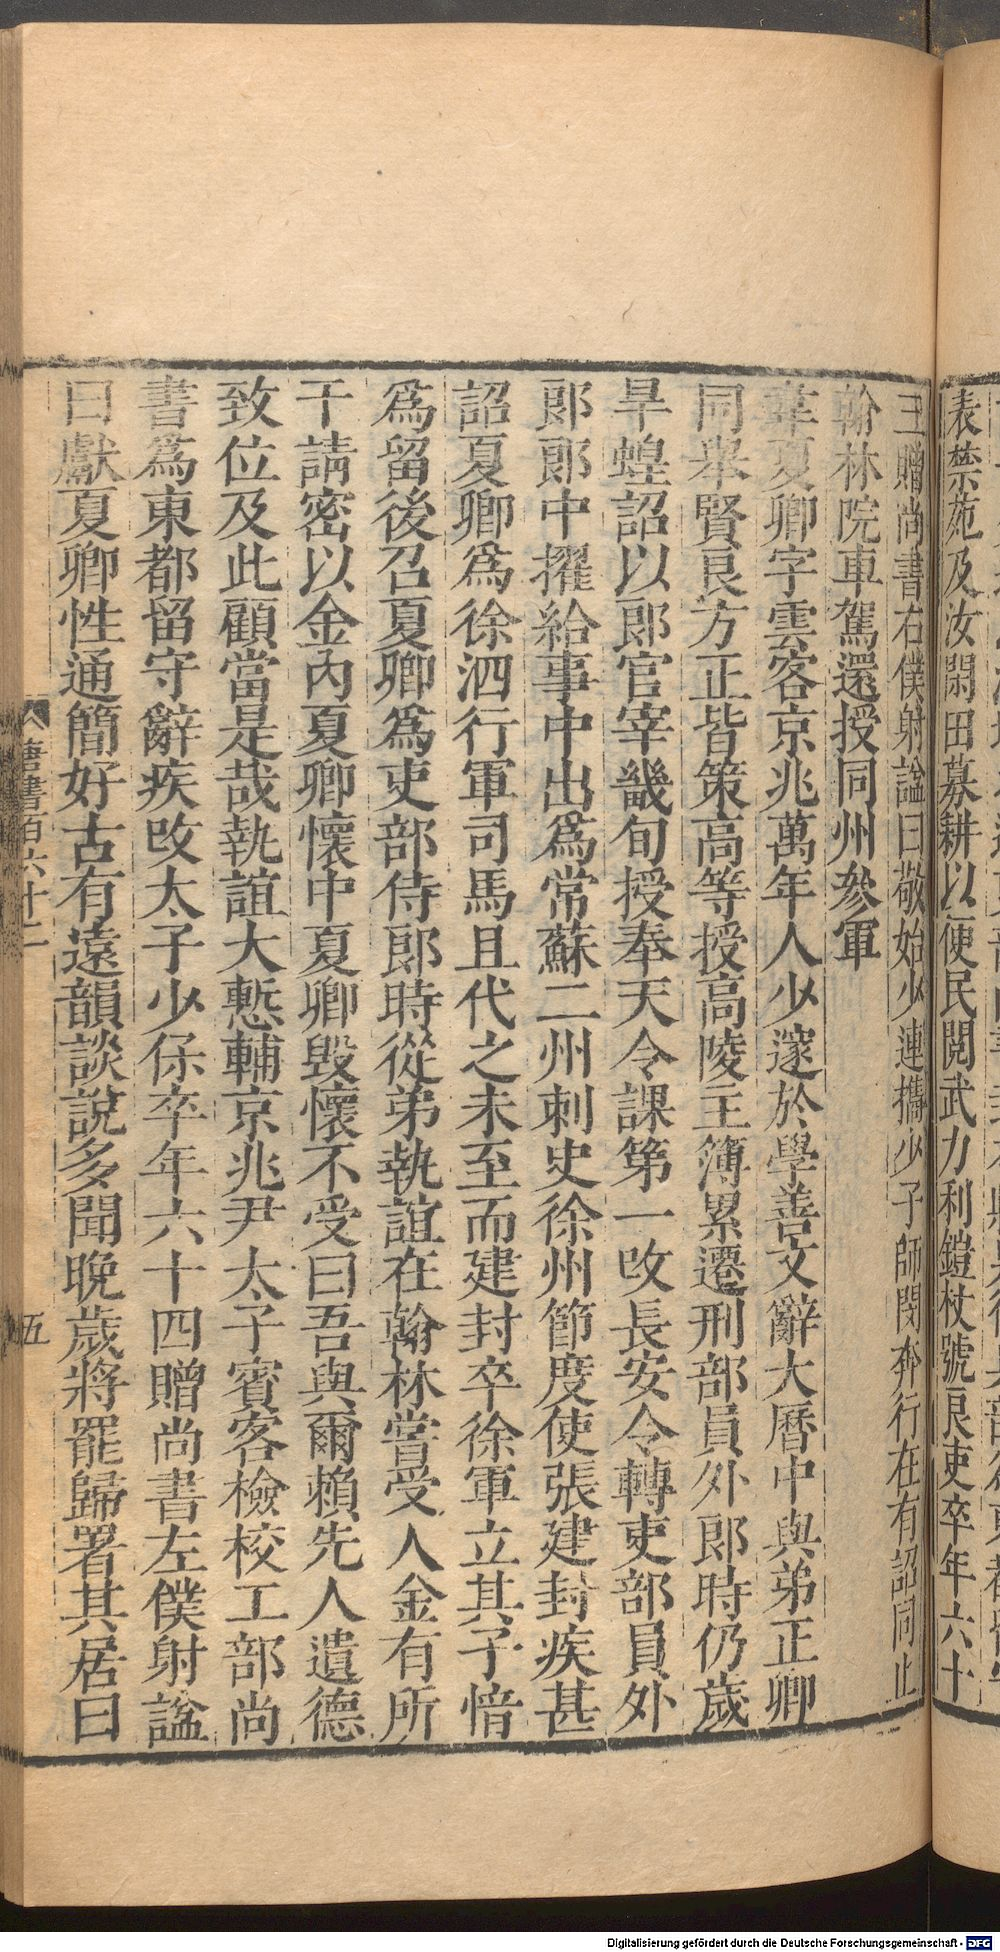 表禁苑及汝閑田募耕以便民閱武力利鎧杖號良吏卒年六十
三贈尚書右僕射謚曰敬始少連攜少子師閔奔行在有詔同止
翰林院車駕還授同州參軍
韋夏卿字雲客京兆萬年人少邃於學善文辭大曆中與弟正卿
同舉賢良方正皆策高等授高陵主簿累遷刑部員外郎時仍歲
旱蝗詔以郎官宰畿甸授奉天令課第一改長安令轉吏部員外
郎郎中擢給事中出爲常蘇二州刺史徐州節度使張建封疾甚
詔夏卿爲徐泗行軍司馬且代之未至而建封卒徐軍立其子愔
爲留後召夏卿爲吏部侍郎時從弟執誼在翰林嘗受人金有所
干請密以金內夏卿懷中夏卿毀懷不受曰吾與爾賴先人遺德
致位及此顧當是哉執誼大慙轉京兆尹太子賓客檢校工部尚
書爲東都留守辭疾改太子少保卒年六十四贈尚書左僕射謚
曰獻夏卿性通簡好古有遠韻談說多聞晚歲將罷歸署其居曰
唐書百六十二
五
Digitalisierung gefördert durch die Deutsche Forschungsgemeinschaft - DFG